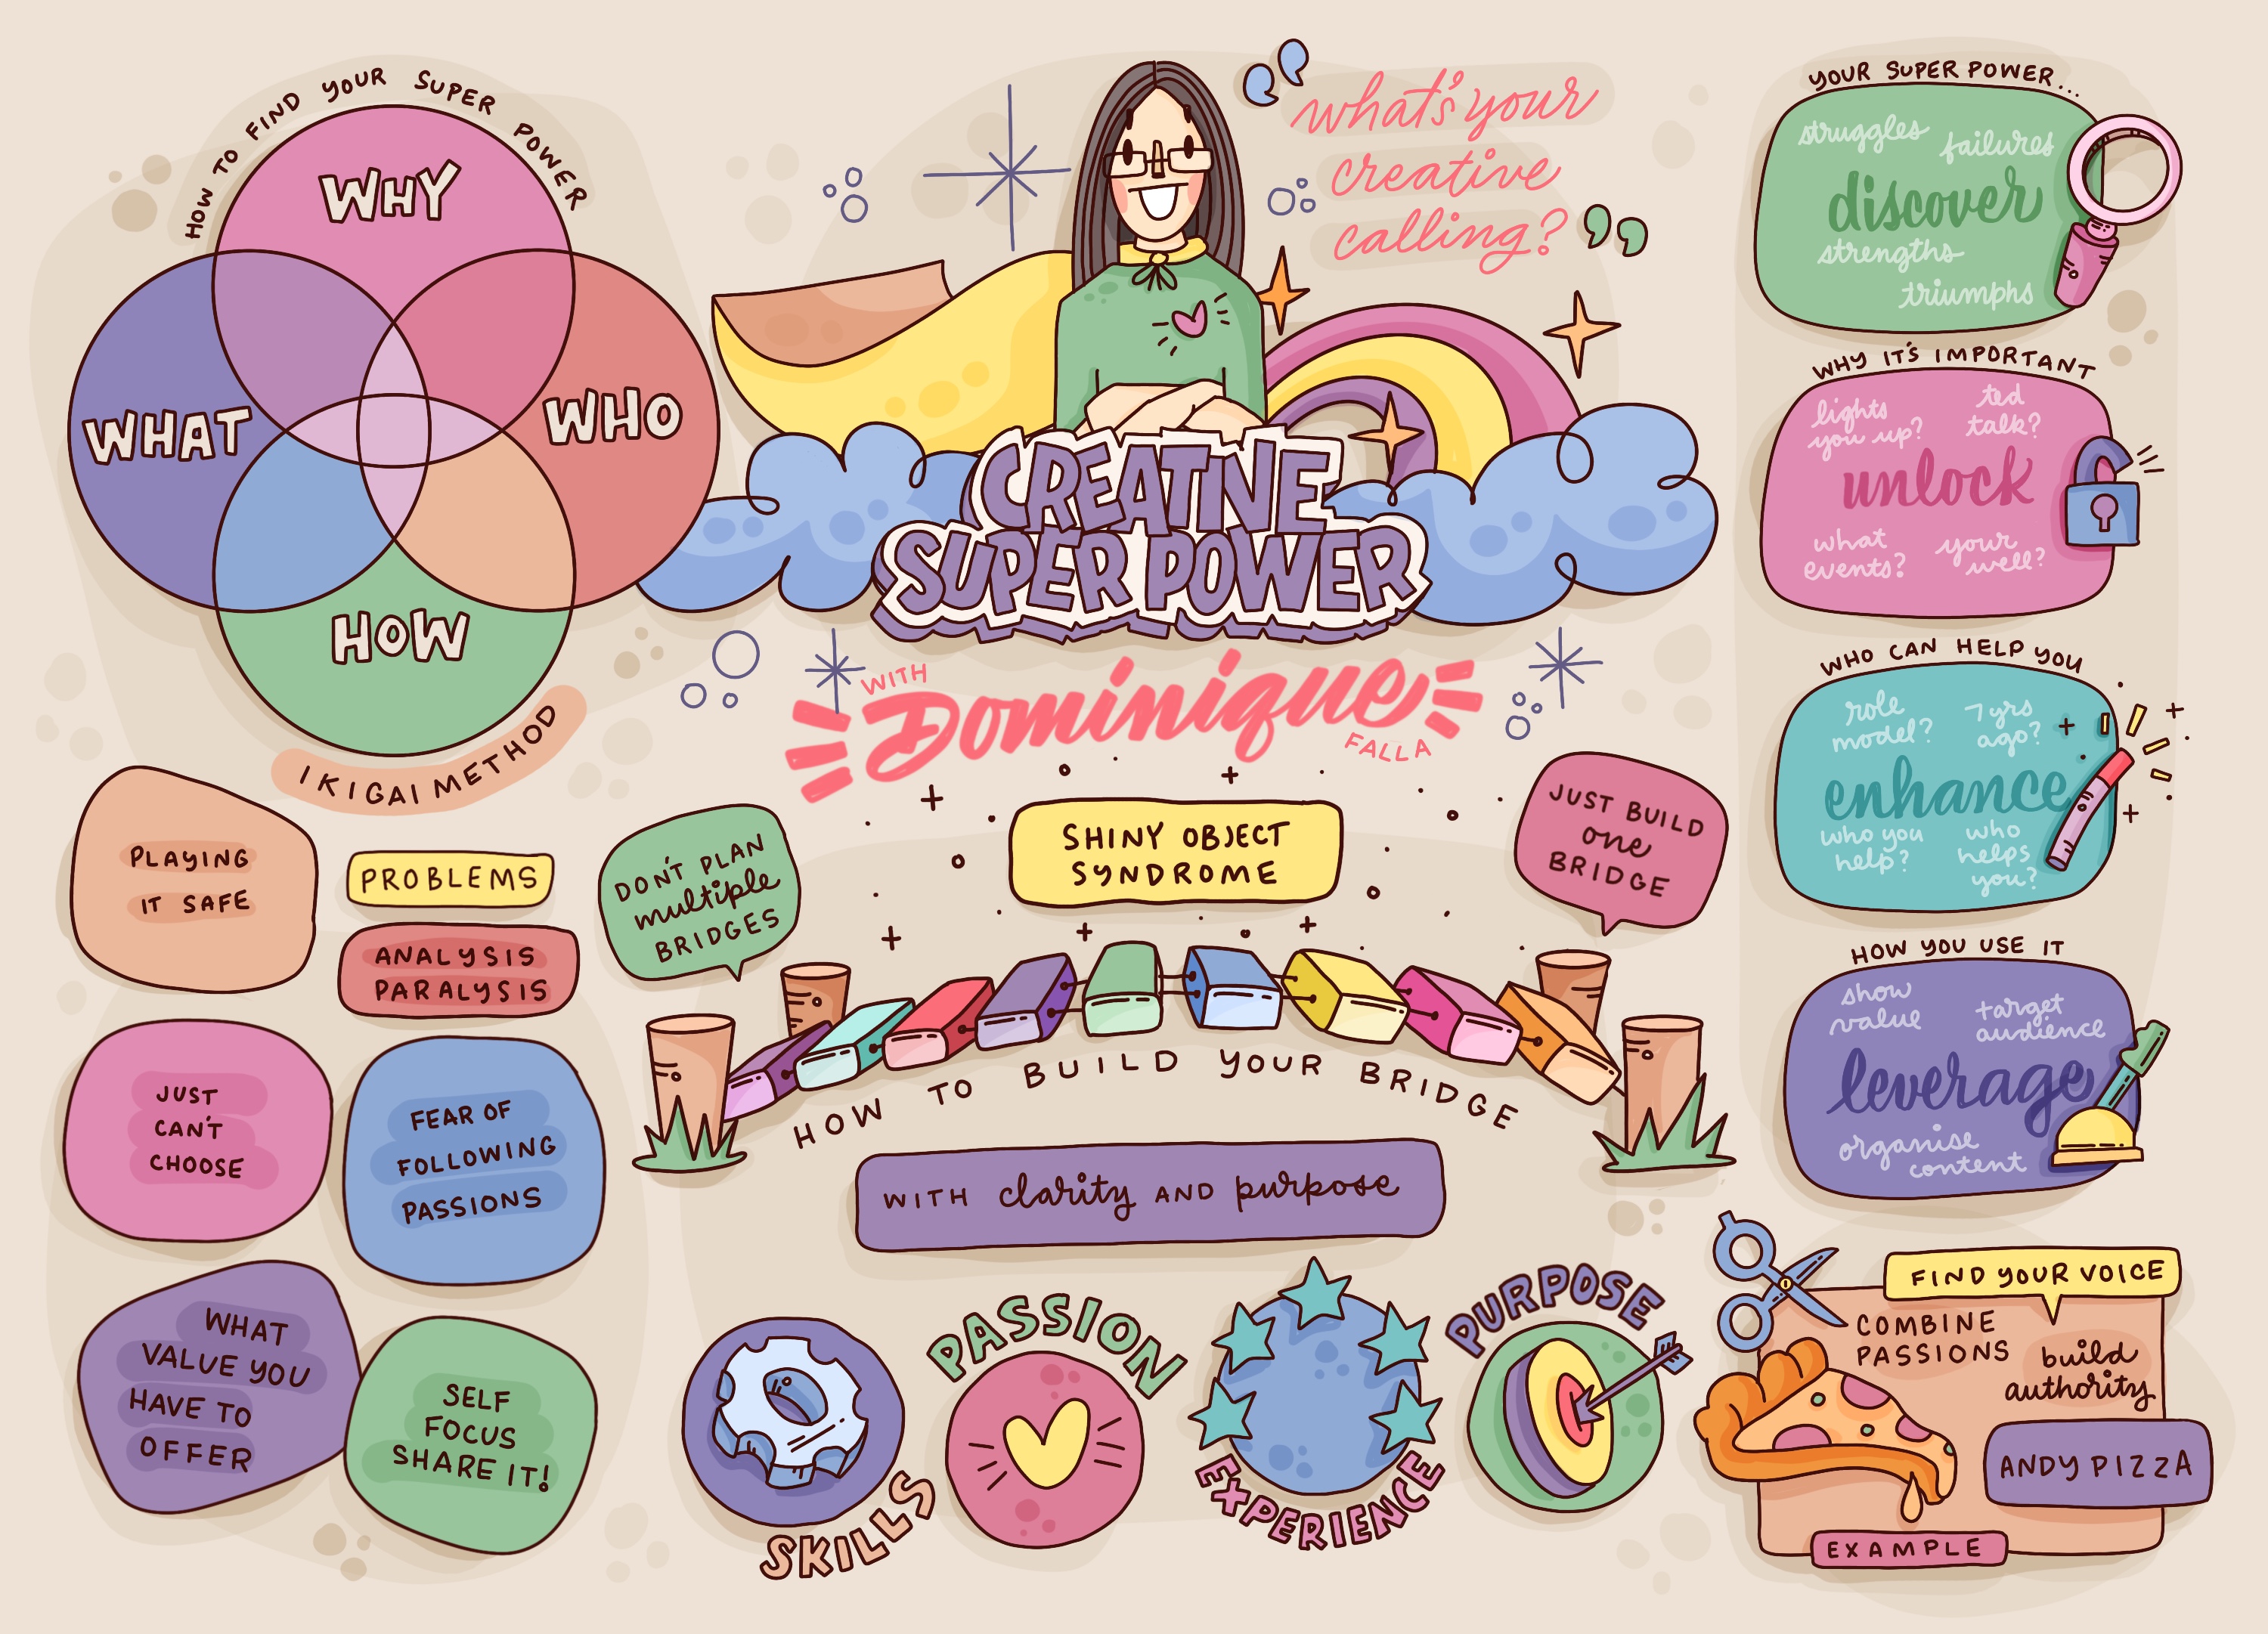 HOW TO FIND YOUR SUPER POWER
WHY
WHAT
WHO
HOW
IKIGAI METHOD
“what's your
creative
calling?”
CREATIVE
SUPER POWER
WITH
Dominique
FALLA
YOUR SUPER POWER...
struggles
failures
discover
strengths
triumphs
WHY IT'S IMPORTANT
lights
you up?
ted
talk?
unlock
what
events?
your
well?
WHO CAN HELP YOU
role
model?
7 yrs
ago?
enhance
who you
help?
who
helps
you?
HOW YOU USE IT
show
value
target
audience
leverage
organise
content
PLAYING
IT SAFE
PROBLEMS
ANALYSIS
PARALYSIS
JUST
CAN'T
CHOOSE
FEAR OF
FOLLOWING
PASSIONS
WHAT
VALUE YOU
HAVE TO
OFFER
SELF
FOCUS
SHARE IT!
DON'T PLAN
multiple
BRIDGES
SHINY OBJECT
SYNDROME
JUST BUILD
one
BRIDGE
HOW TO BUILD YOUR BRIDGE
WITH clarity AND purpose
SKILLS
PASSION
EXPERIENCE
PURPOSE
FIND YOUR VOICE
COMBINE
PASSIONS
build
authority
ANDY PIZZA
EXAMPLE